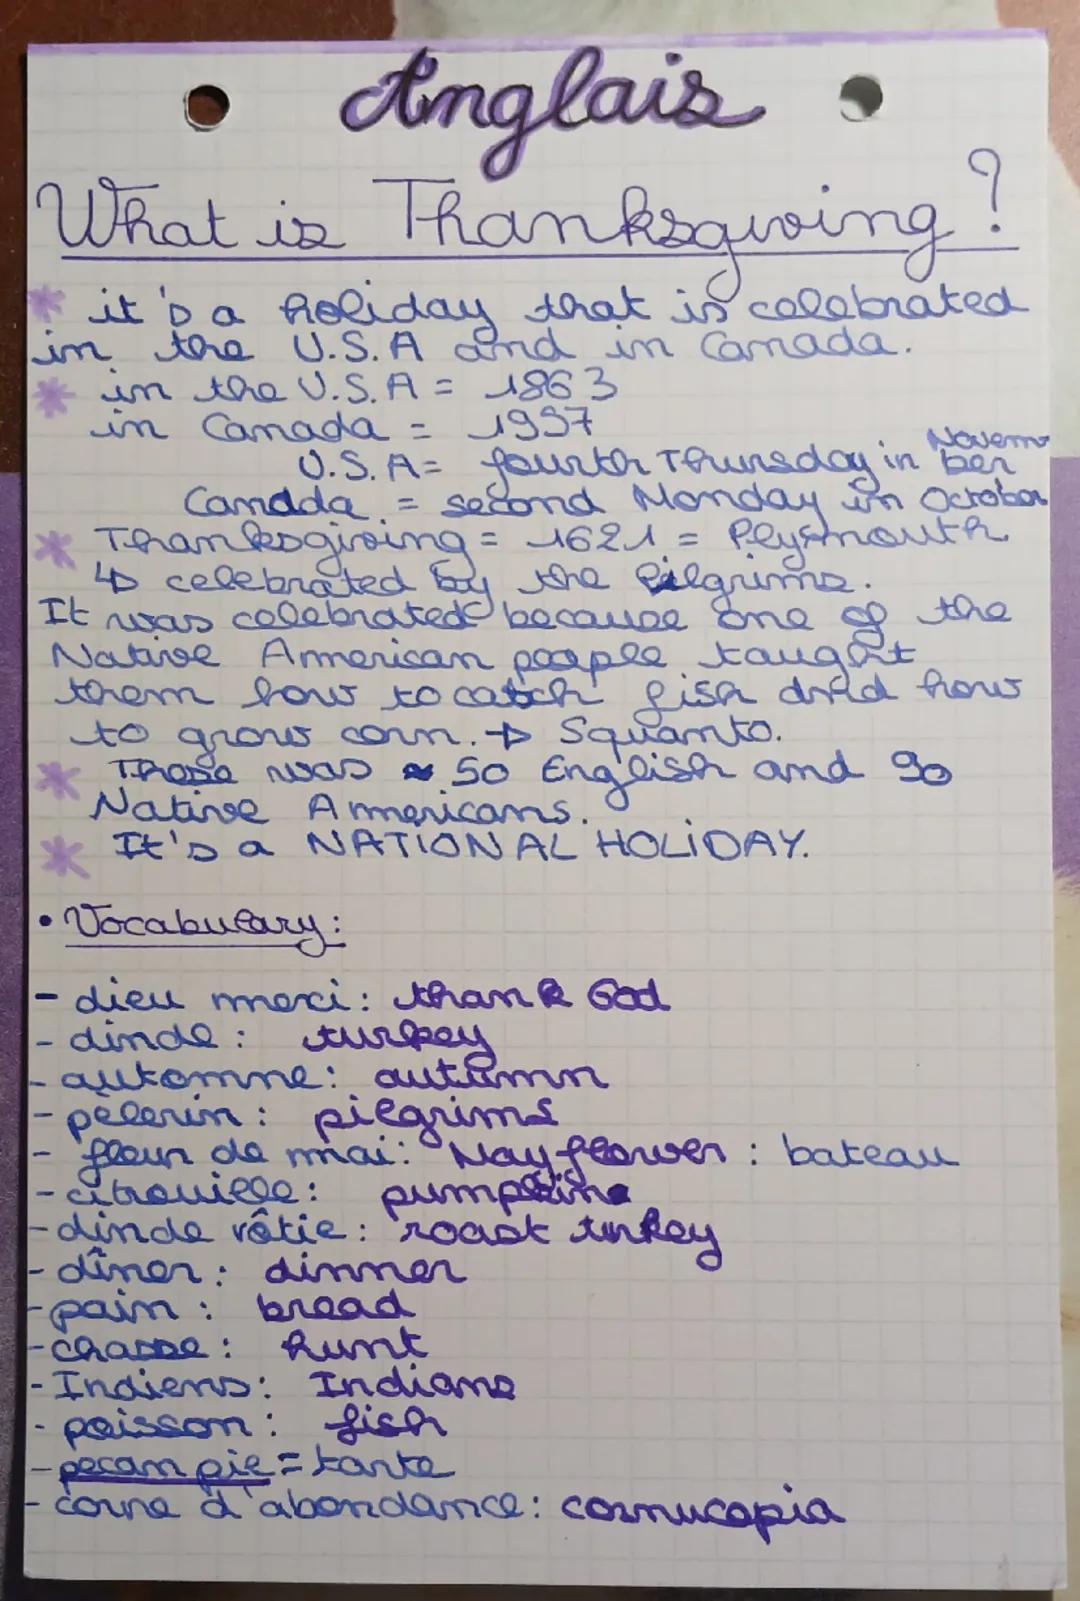 Anglais
What is Thanksgiving ?
* it's a holiday that is celebrated
in the U.S.A and in Canada.
* in the U.S.A = 1863
in Canada = 1957
U.S.A = fourth Thursday in Novem
ber
Canada = second Monday in October
* Thanksgiving = 1621 = Plysmouth
↳ celebrated by the Pilgrims.
It was celebrated because one of the
Native American people taught
them how to catch fish and how
to grow corn. → Squanto.
* These was ≈ 50 English and 90
Native Americans.
* It's a NATIONAL HOLIDAY.
• Vocabulary :
- dieu merci : thank God
- dinde : turkey
- automne : autumn
- pèlerin : pilgrims
- fleur de mai : Mayflower : bateau
- citrouille : pumpkins
- dinde rôtie : roast turkey
- dîner : dinner
- pain : bread
- chasse : hunt
- Indiens : Indians
- poisson : fish
- pecan pie = tarte
- corne d'abondance : cornucopia